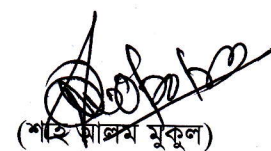 (শাহ আলম মুকুল)